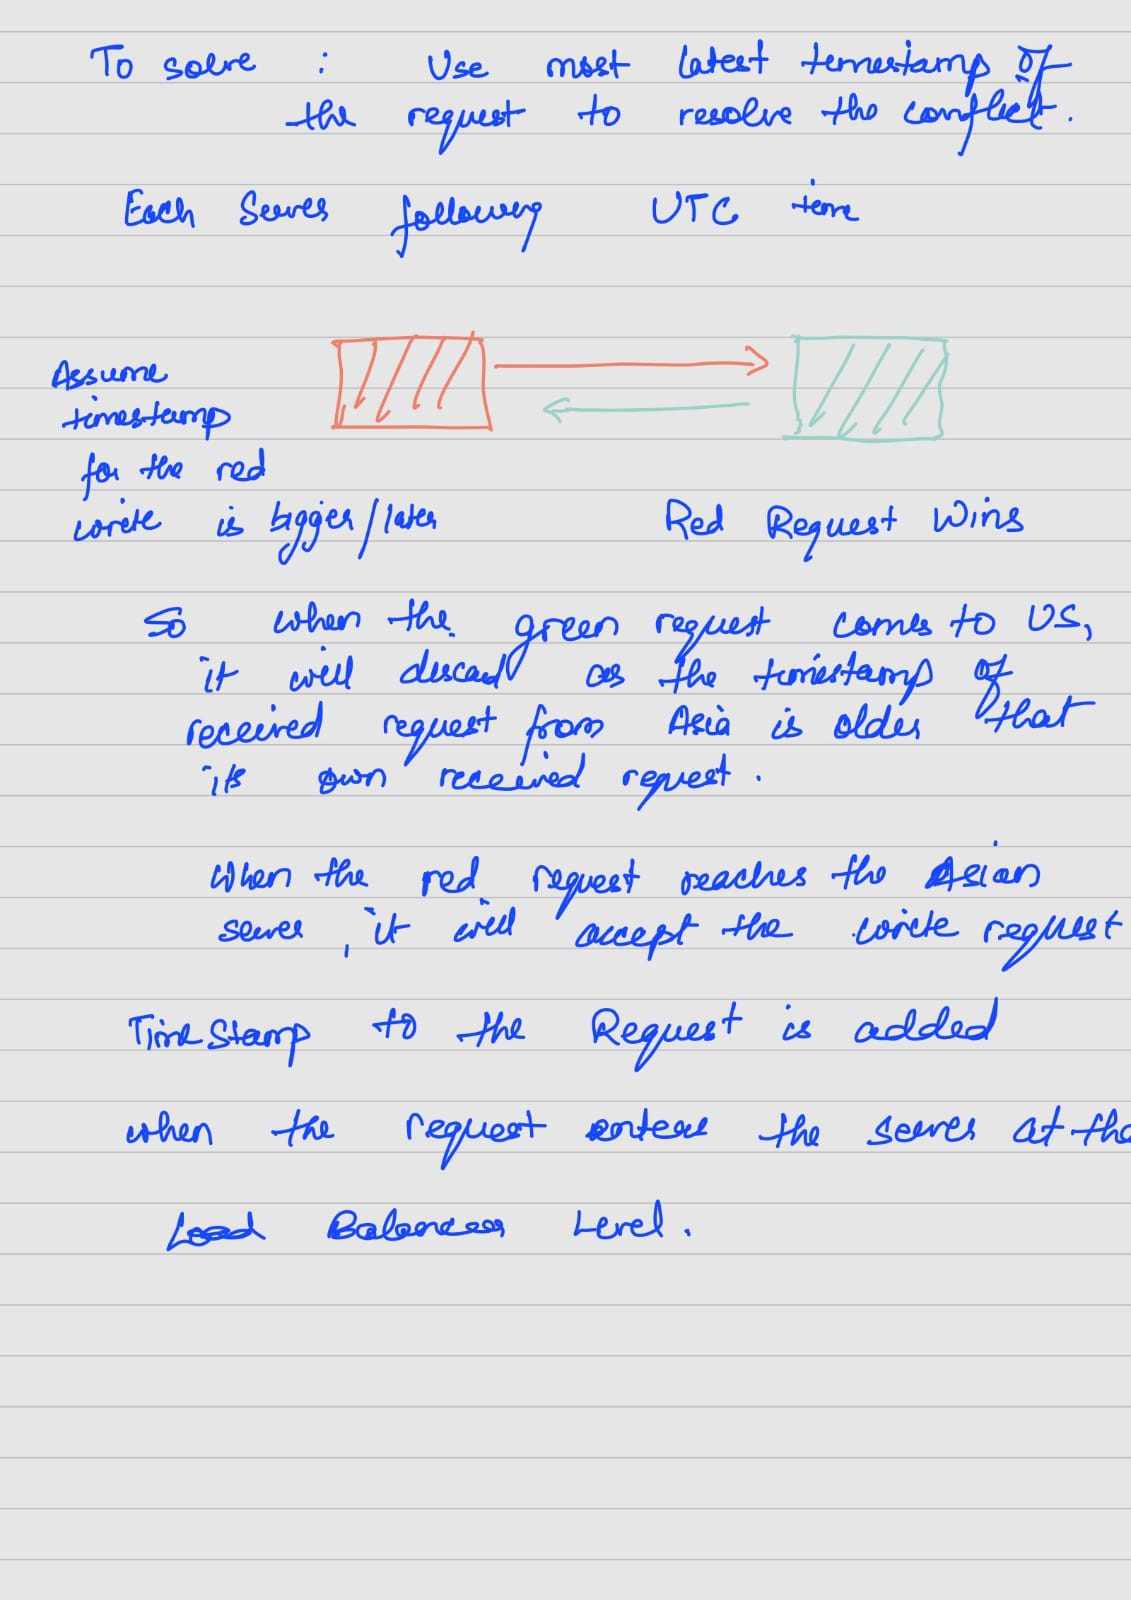 To solve : Use most latest timestamp of
the request to resolve the conflict.
Each Server following UTC time
Assume
timestamp
for the red
write is bigger/later
Red Request Wins
So when the green request comes to US,
it will discard as the timestamp of
received request from Asia is older that
its own received request.
When the red request reaches the Asian
server, it will accept the write request
TimeStamp to the Request is added
when the request enters the server at the
Load Balancer Level.